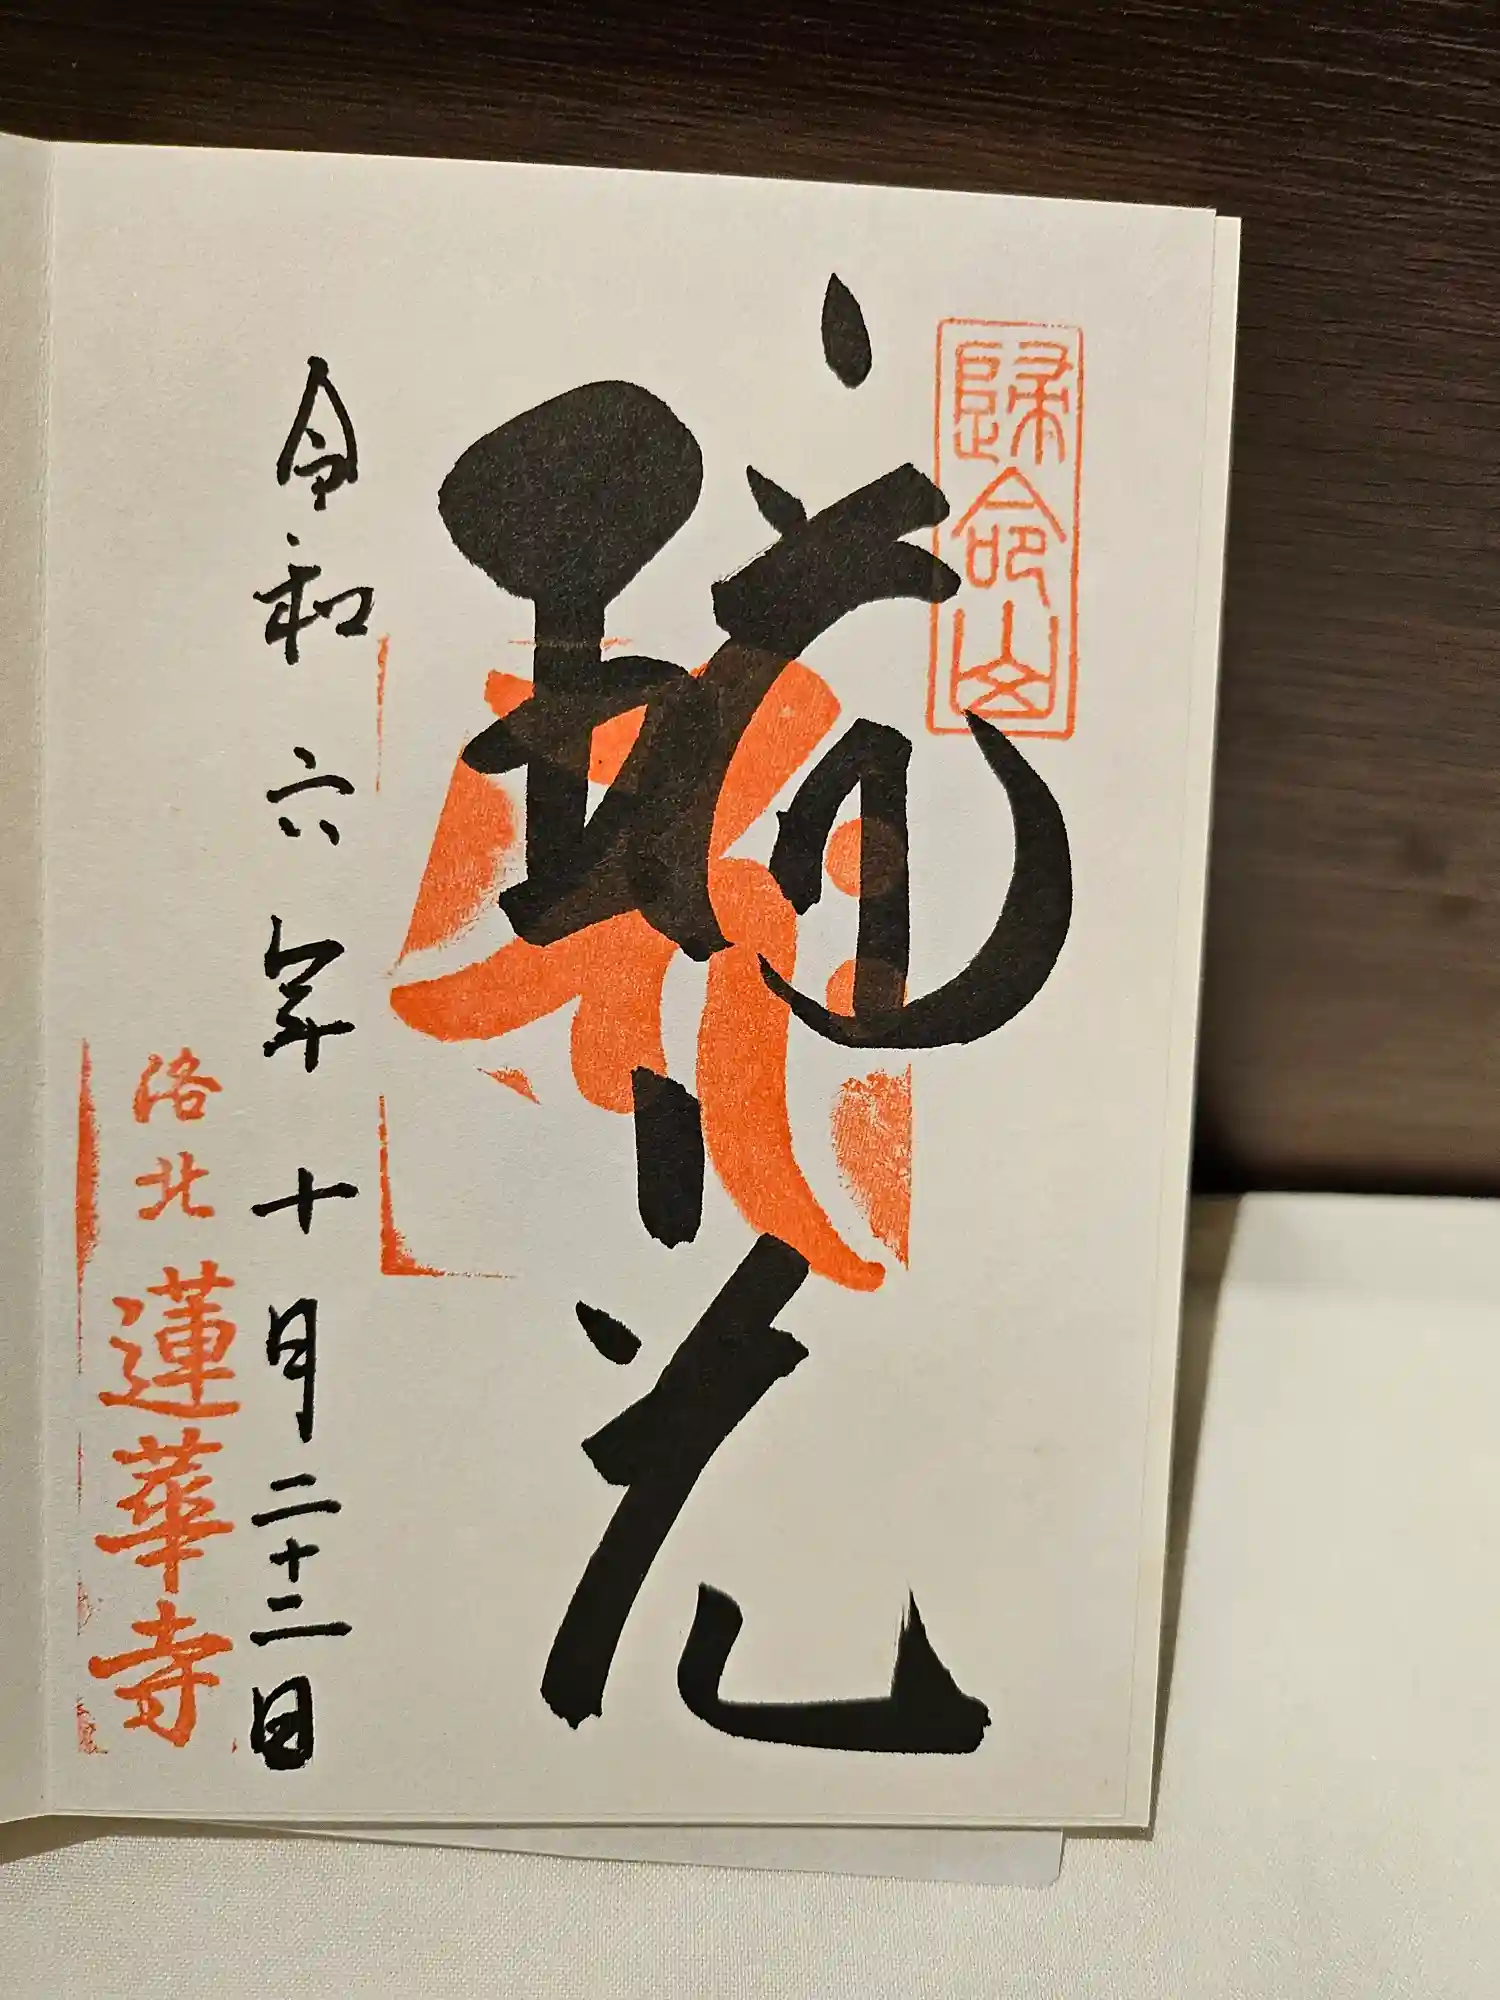 歸命山
花
令和六年十月二十二日
洛北 蓮華寺